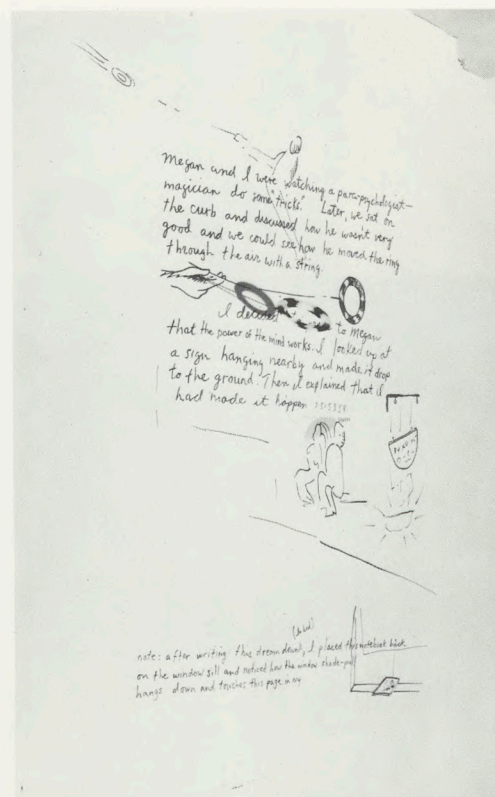 Megan and I were watching a para-psychologist—
magician do some "tricks." Later, we sat on
the curb and discussed how he wasn't very
good and we could see how he moved the ring
through the air with a string.
I to Megan
that the power of the mind works. I looked up at
a sign hanging nearby and made it drop
to the ground. Then I explained that I
had made it happen
(in bed)
note: after writing this dream down, I placed this notebook
on the window sill and noticed how the window shade-pull
hangs down and touches this page in my